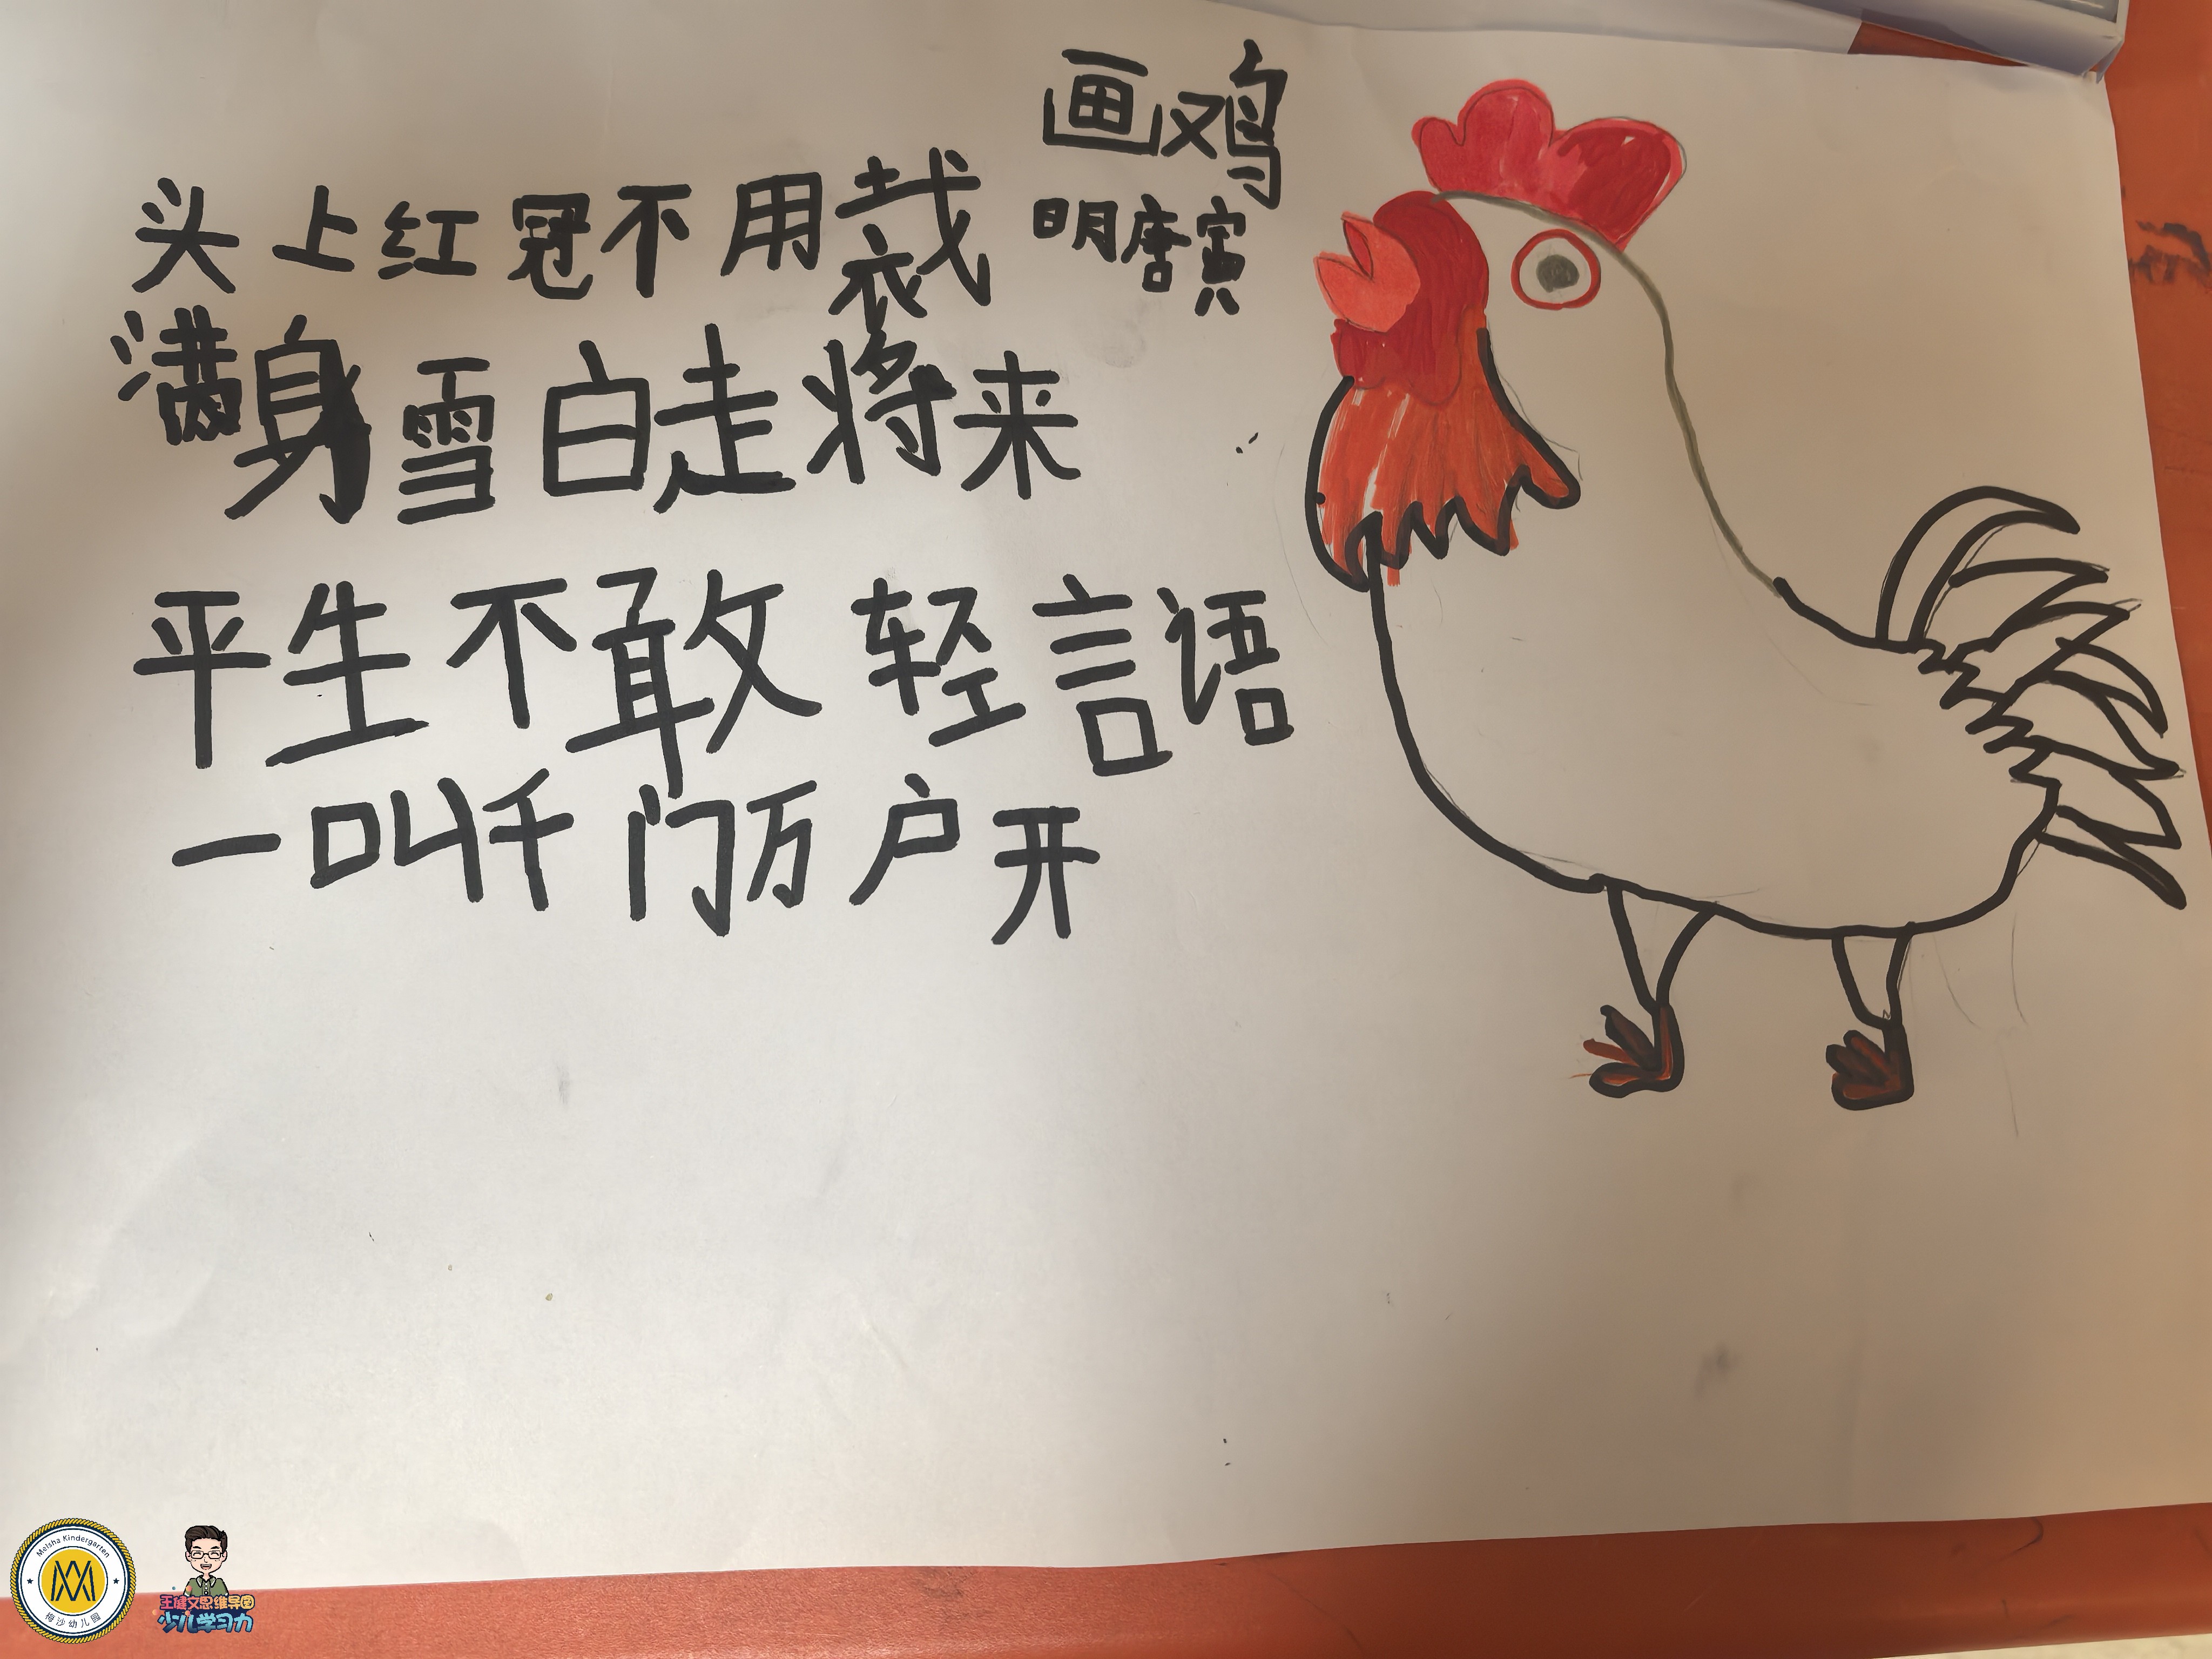 画鸡
明唐寅
头上红冠不用裁
满身雪白走将来
平生不敢轻言语
一叫千门万户开
Meisha Kindergarten
梅沙幼儿园
王健文思维导图
少儿学习力